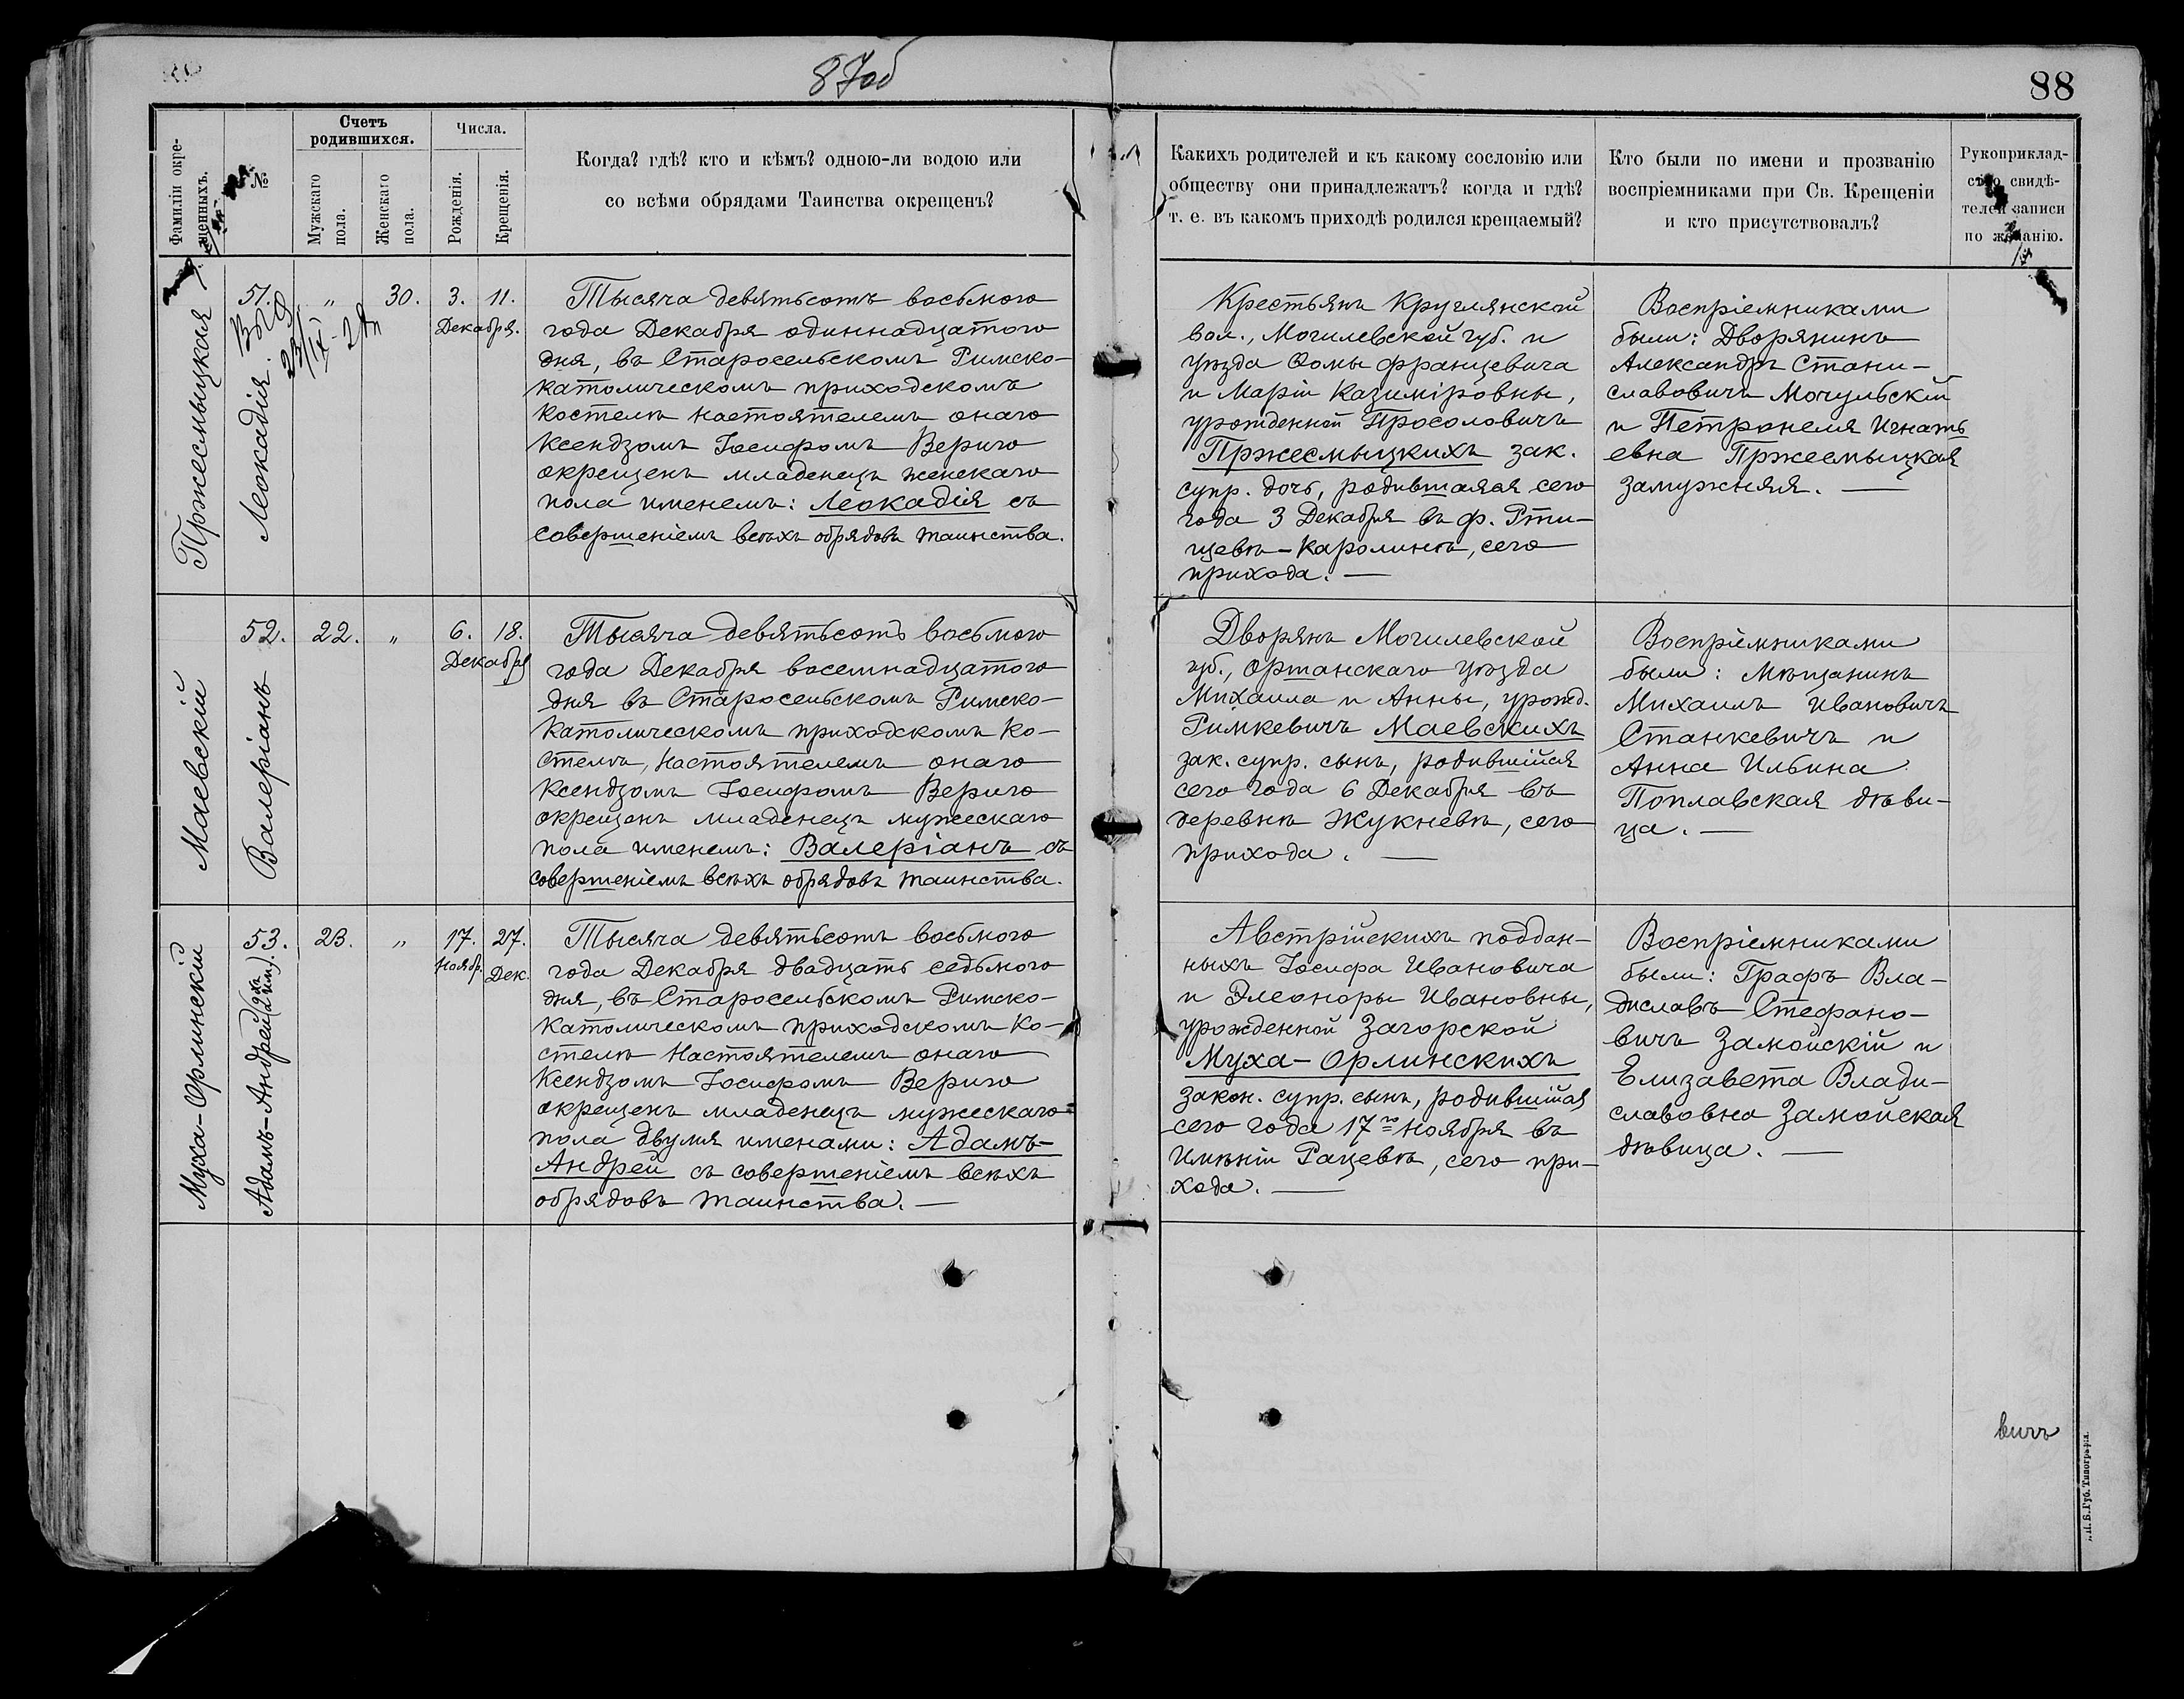 87об
88
Фамиліи окре-
щенныхъ.
№
Счетъ
родившихся.
Мужскаго
пола.
Женскаго
пола.
Числа.
Рожденія.
Крещенія.
Когда? гдѣ? кто и кѣмъ? одною-ли водою или
со всѣми обрядами Таинства окрещенъ?
Какихъ родителей и къ какому сословію или
обществу они принадлежатъ? когда и гдѣ?
т. е. въ какомъ приходѣ родился крещаемый?
Кто были по имени и прозванію
воспріемниками при Св. Крещеніи
и кто присутствовалъ?
Рукоприклад-
ство свидѣ-
телей записи
по желанію.
Пржесмыцкая
51.
Леокадія.
"
30.
3.
11.
Декабря.
Тысяча девятьсотъ восьмого
года Декабря одиннадцатого
дня, въ Старосельскомъ Римско-
католическомъ приходскомъ
костелѣ настоятелемъ онаго
Ксендзомъ Іосифомъ Вериго
окрещенъ младенецъ женскаго
пола именемъ: Леокадія съ
совершеніемъ всѣхъ обрядовъ таинства.
Крестьянъ Круглянской
вол., Могилевской губ. и
уѣзда Ѳомы Францевича
и Маріи Казиміровны,
урожденной Просоловичъ
Пржесмыцкихъ зак.
супр. дочь, родившаяся сего
года 3 Декабря въ ф. Рти-
щевѣ-Каролинѣ, сего
прихода. —
Воспріемниками
были: Дворянинъ
Александръ Стани-
славовичъ Мочульскій
и Петронеля Игнать
евна Пржесмыцкая
замужняя. —
Маевскій
52.
Валеріанъ
22.
"
6.
18.
Декабря
Тысяча девятьсотъ восьмого
года Декабря восемнадцатого
дня въ Старосельскомъ Римско-
Католическомъ приходскомъ Ко-
стелѣ, Настоятелемъ онаго
Ксендзомъ Іосифомъ Вериго
окрещенъ младенецъ мужескаго
пола именемъ: Валеріанъ съ
совершеніемъ всѣхъ обрядовъ таинства.
Дворянъ Могилевской
губ., Оршанскаго уѣзда
Михаила и Анны, урожд.
Римкевичъ Маевскихъ
зак. супр. сынъ, родившійся
сего года 6 Декабря въ
деревнѣ Жукневѣ, сего
прихода. —
Воспріемниками
были: Мѣщанинъ
Михаилъ Ивановичъ
Станкевичъ и
Анна Ильина
Поплавская дѣви-
ца. —
Муха-Орлинскій
53.
Адамъ-Андрей
23.
"
17.
Ноябр.
27.
Дек.
Тысяча девятьсотъ восьмого
года Декабря двадцать седьмого
дня, въ Старосельскомъ Римско-
Католическомъ приходскомъ Ко-
стелѣ Настоятелемъ онаго
Ксендзомъ Іосифомъ Вериго
окрещенъ младенецъ мужескаго
пола двумя именами: Адамъ-
Андрей съ совершеніемъ всѣхъ
обрядовъ таинства. —
Австрійскихъ поддан-
ныхъ Іосифа Ивановича
и Элеоноры Ивановны,
урожденной Загорской
Муха-Орлинскихъ
закон. супр. сынъ, родившійся
сего года 17го Ноября въ
Имѣніи Рацевѣ, сего при-
хода. —
Воспріемниками
были: Графъ Вла-
диславъ Стефано-
вичъ Замойскій и
Елизавета Влади-
славовна Замойская
дѣвица. —
вичъ
Губ. Типографія.